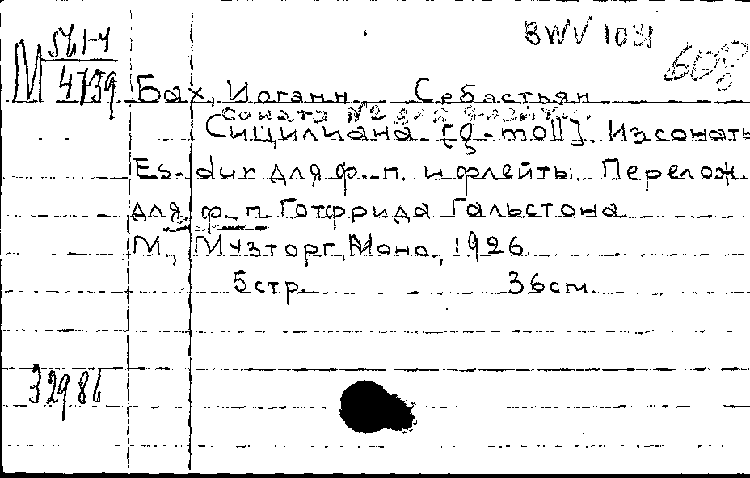 BWV 1031
М 561-4
4739
608
Бах, Иоганн Себастьян
Соната №2 для
Сицилиана [g-moll]. Из сонаты
Es-dur для ф.-п. и флейты. Перелож.
для ф.-п. Готфрида Гальстона
М., Музторг Моно, 1926
5стр. 36см.
32986